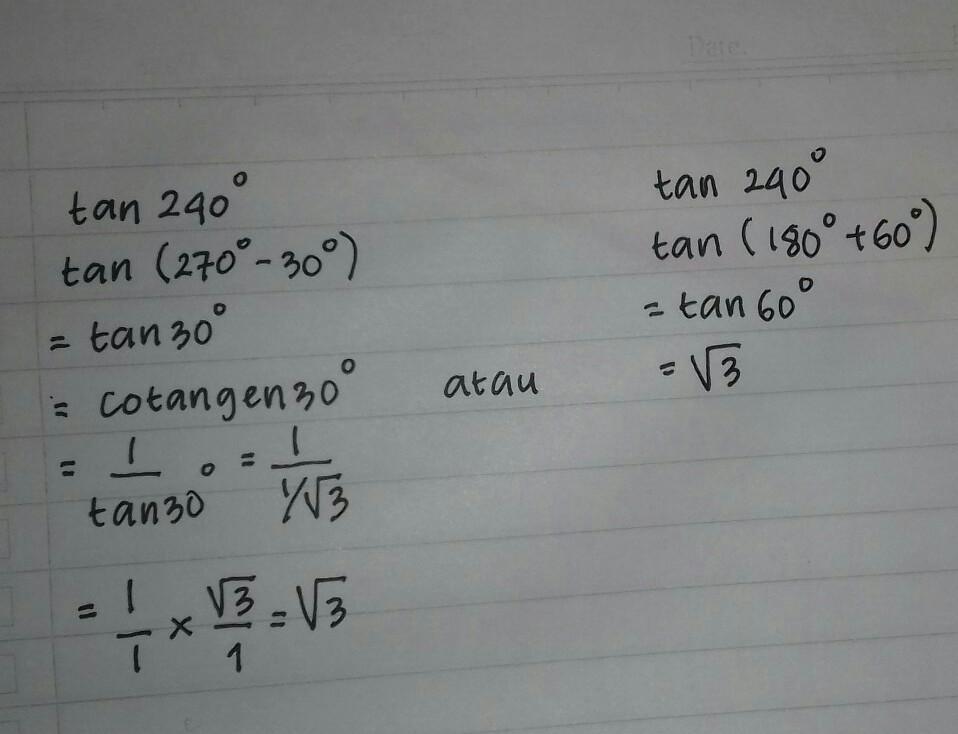 Date.
tan 240°
tan (270° - 30°)
= tan 30°
= cotangen 30°
= 1/tan 30° = 1/(1/√3)
= 1/1 × √3/1 = √3
atau
tan 240°
tan (180° + 60°)
= tan 60°
= √3